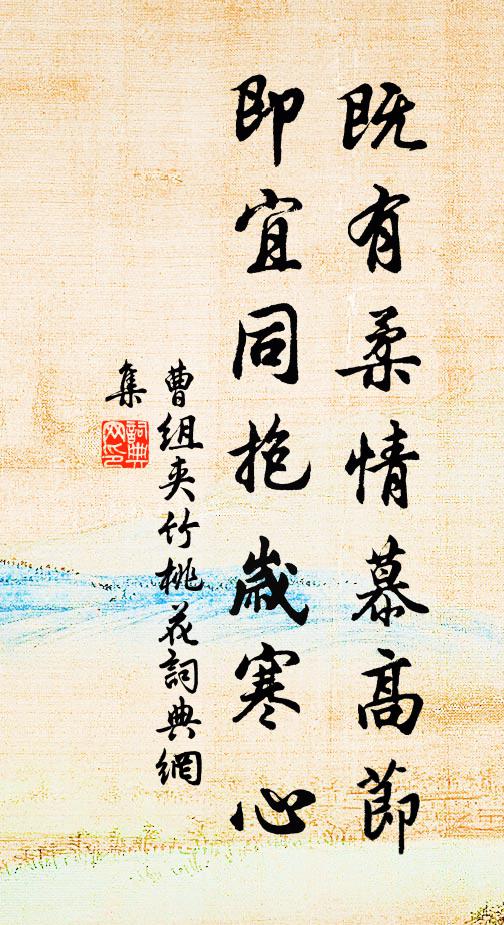 既有柔情慕高節
即宜同抱歲寒心
曹組夾竹桃花詞典網
集
詞典
网印